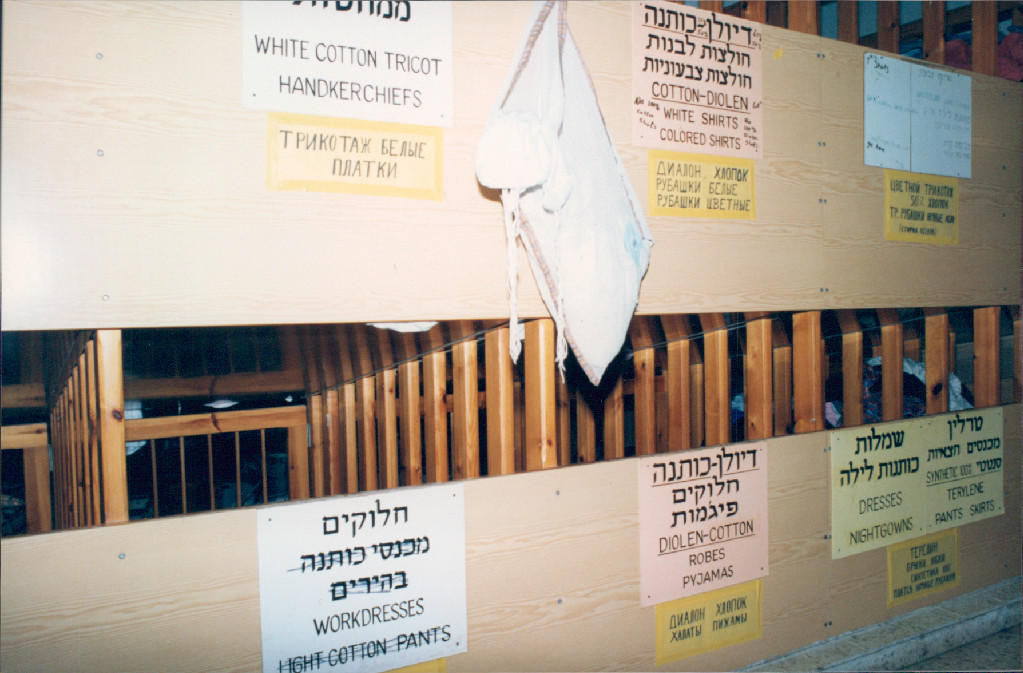 ממחטות
WHITE COTTON TRICOT
HANDKERCHIEFS
ТРИКОТАЖ БЕЛЫЕ
ПЛАТКИ
דיולן-כותנה
חולצות לבנות
חולצות צבעוניות
COTTON-DIOLEN
WHITE SHIRTS
COLORED SHIRTS
ДИАЛОН ХЛОПОК
РУБАШКИ БЕЛЫЕ
РУБАШКИ ЦВЕТНЫЕ
ЦВЕТНОЙ ТРИКОТАЖ
50% ХЛОПОК
חלוקים
מכנסי כותנה
בהירים
WORKDRESSES
LIGHT COTTON PANTS
דיולן-כותנה
חלוקים
פיגמות
DIOLEN-COTTON
ROBES
PYJAMAS
ДИАЛОН ХЛОПОК
ХАЛАТЫ ПИЖАМЫ
שמלות
כותנות לילה
DRESSES
NIGHTGOWNS
טרלין
מכנסים חצאיות
SYNTHETIC 100% סנטטי
TERYLENE
PANTS SKIRTS
ТЕРЕЛИН
БРЮКИ ЮБКИ